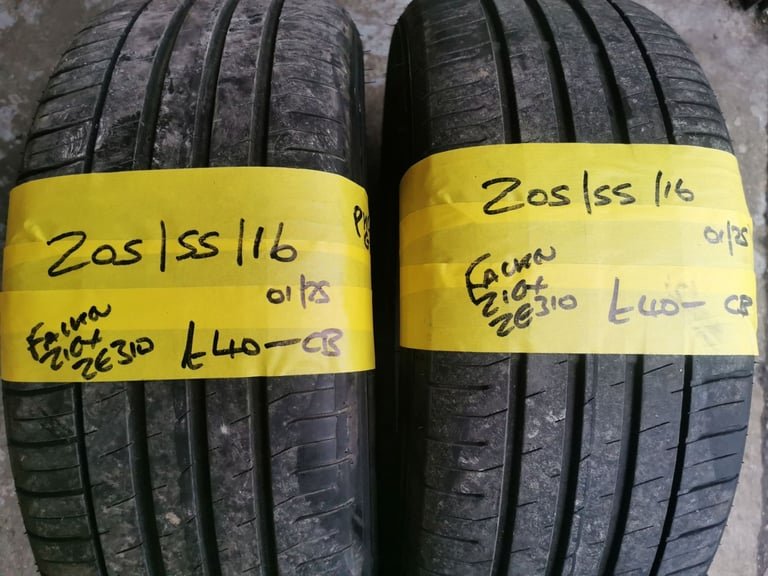 205/55/16
01/25
Falken
Ziex
ZE310
£40-CB
205/55/16
01/25
Falken
Ziex
ZE310
£40-CB